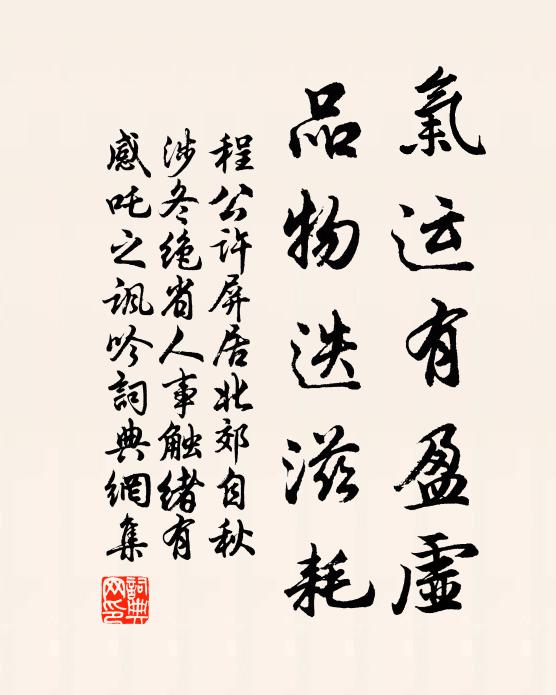 氣运有盈虛
品物迭滋耗
程公许屏居北郊自秋
涉冬绝省人事触绪有
感吒之讽吟詞典網集
詞典网印